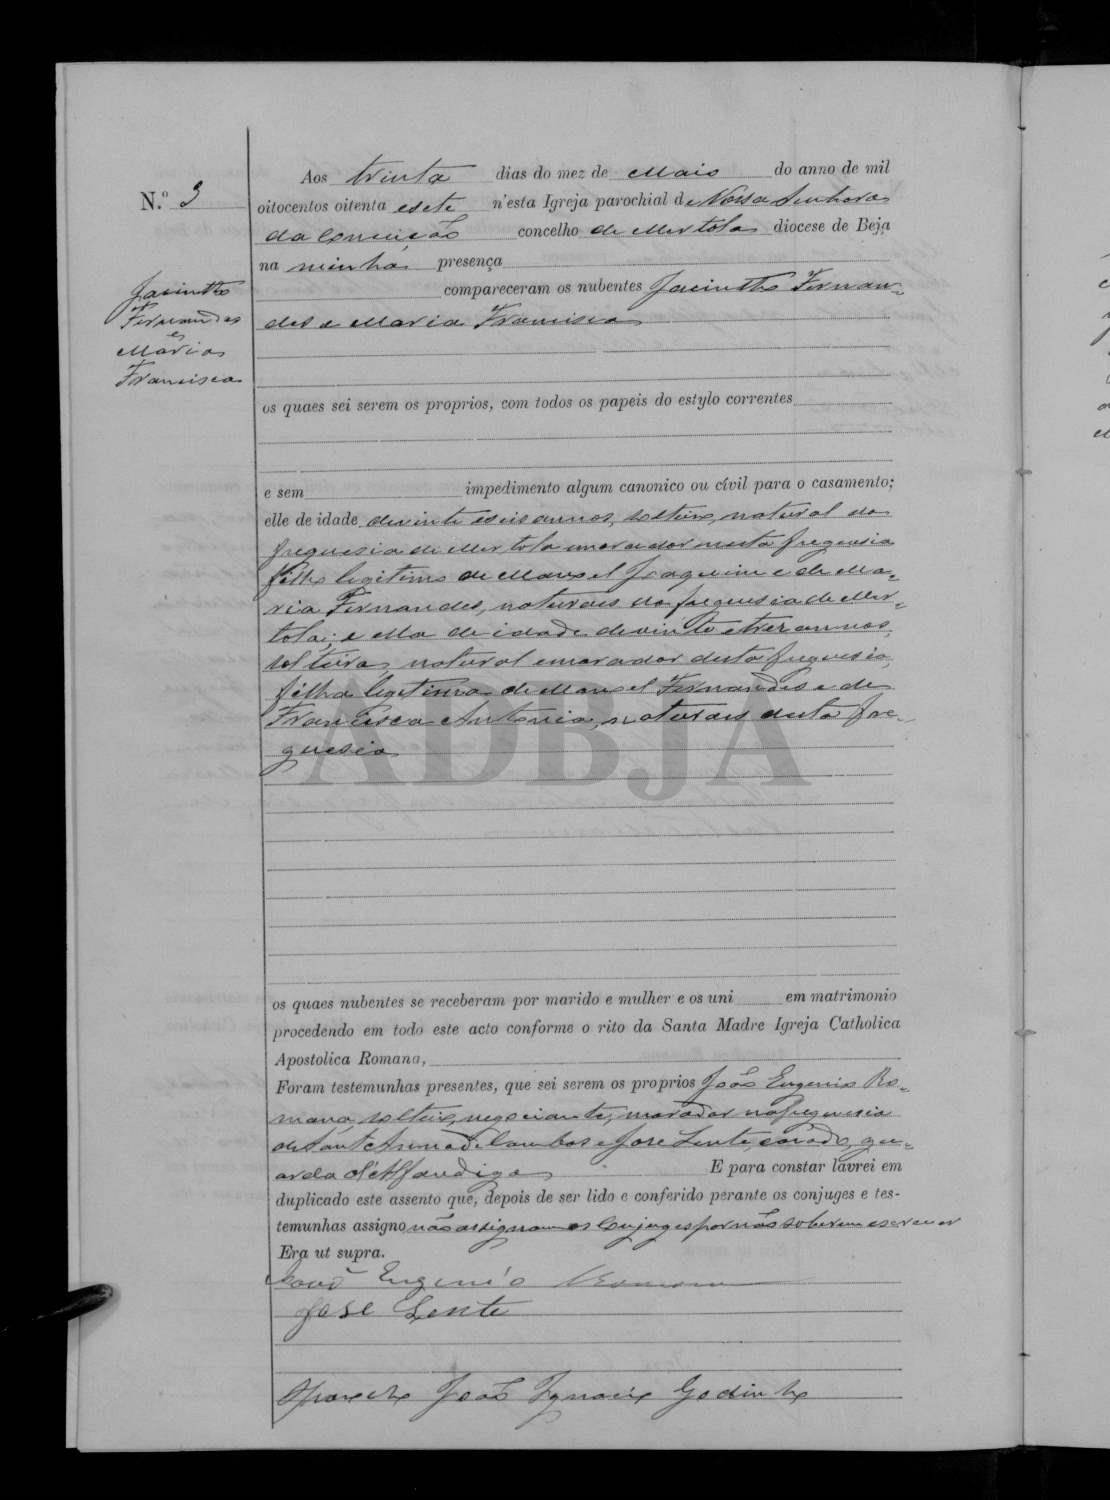 N.º 3
Jacintho
Fernandes
e
Maria
Francisca
Aos trinta dias do mez de Maio do anno de mil
oitocentos oitenta e sete n'esta Igreja parochial de Nossa Senhora
da Conceição concelho de Mertola diocese de Beja
na minha presença
compareceram os nubentes Jacintho Fernan-
des e Maria Francisca
os quaes sei serem os proprios, com todos os papeis do estylo correntes
e sem impedimento algum canonico ou civil para o casamento;
elle de idade de vinte e seis annos, solteiro, natural da
freguesia de Mertola e morador nesta freguesia
filho legitimo de Manoel Joaquim e de Ma-
ria Fernandes, naturaes da freguesia de Mer-
tola; e ella de idade de vinte e tres annos,
solteira, natural e morador desta freguesia,
filha legitima de Manoel Fernandes e de
Francisca Antonia, naturaes desta fre-
guesia
ADBJA
os quaes nubentes se receberam por marido e mulher e os uni em matrimonio
procedendo em todo este acto conforme o rito da Santa Madre Igreja Catholica
Apostolica Romana,
Foram testemunhas presentes, que sei serem os proprios João Eugenio Ro-
mana, solteiro, negociante, morador na freguesia
de Sant'Anna de Cambas e José Lente, casado, gu-
arda d'Alfandiga E para constar lavrei em
duplicado este assento que, depois de ser lido e conferido perante os conjuges e tes-
temunhas assigno não assignam os conjuges por não saberem escrever
Era ut supra.
João Eugenio Romana
José Lente
O Parocho João Ignacio Godinho